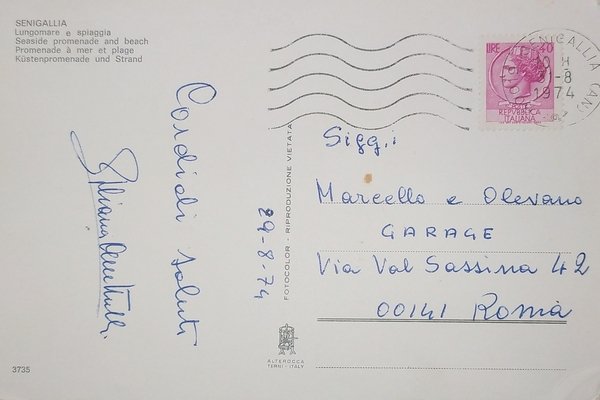 SENIGALLIA
Lungomare e spiaggia
Seaside promenade and beach
Promenade à mer et plage
Küstenpromenade und Strand
Cordiali saluti
29-8-74
FOTOCOLOR - RIPRODUZIONE VIETATA
LIRE 40
REPVBBLICA
ITALIANA
SENIGALLIA (AN)
H
31-8
1974
Sigg.i
Marcello e Olevano
GARAGE
Via Val Sassina 42
00141 Roma
ALTEROCCA
TERNI - ITALY
3735